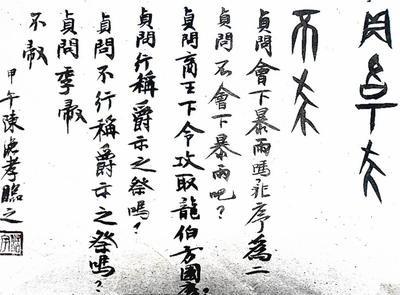 不
貞問會下暴雨嗎非序為二
貞問不會下暴雨吧？
貞問商王下令攻取龍伯方國
貞問行稱爵示之祭嗎？
貞問不行稱爵示之祭嗎？
貞問季
不
甲午陳孝臨之